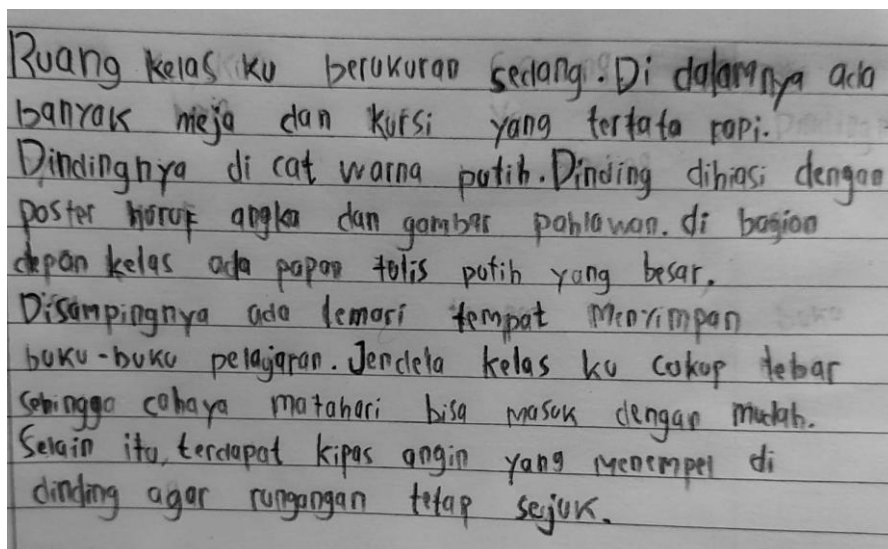 Ruang kelas ku berukuran sedang. Di dalamnya ada
banyak meja dan kursi yang tertata rapi.
Dindingnya di cat warna putih. Dinding dihiasi dengan
poster huruf angka dan gambar pahlawan. di bagian
depan kelas ada papan tulis putih yang besar.
Disampingnya ada lemari tempat menyimpan
buku-buku pelajaran. Jendela kelas ku cukup lebar
sehingga cahaya matahari bisa masuk dengan mudah.
Selain itu, terdapat kipas angin yang menempel di
dinding agar rungangan tetap sejuk.